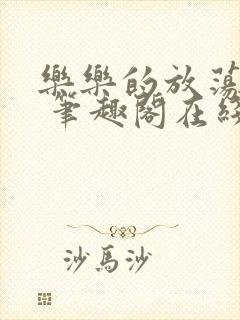 樂樂的放蕩
筆趣閣在綫
沙馬沙